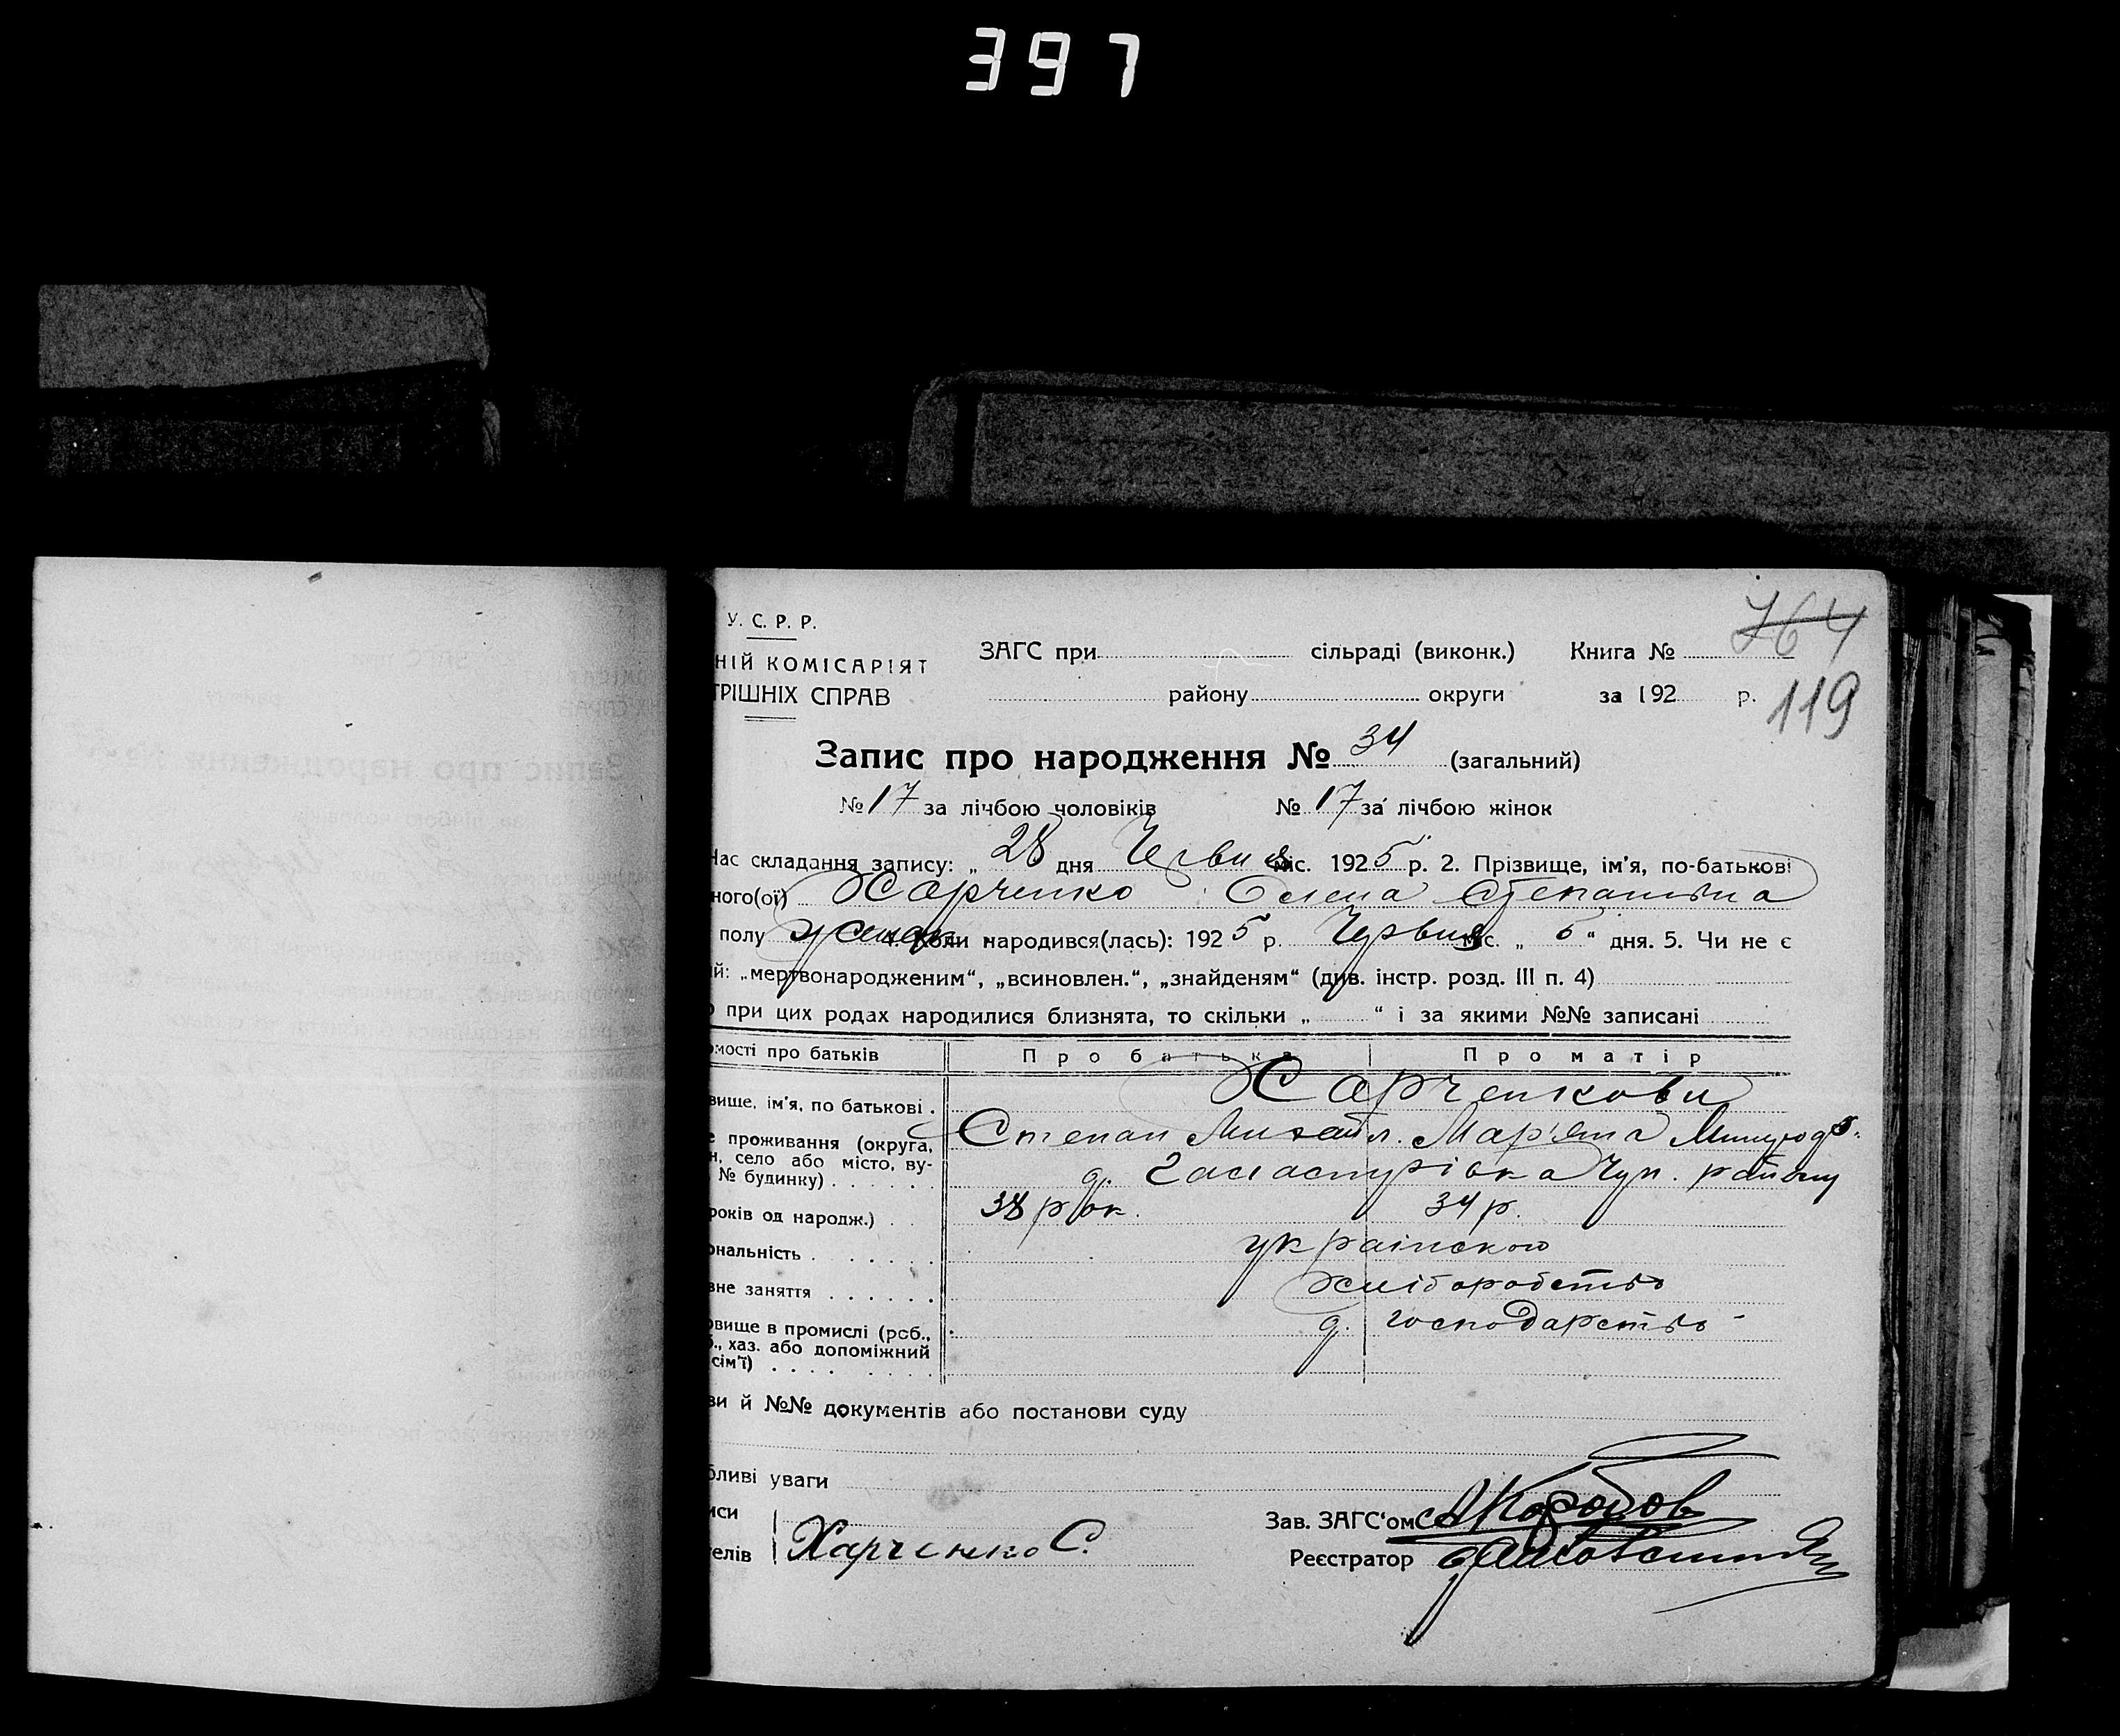 397
764
119
У. С. Р. Р.
НІЙ КОМІСАРІЯТ
ТРІШНІХ СПРАВ
ЗАГС при сільраді (виконк.) Книга №
району округи за 192 р.
Запис про народження № 34 (загальний)
№ 17 за лічбою чоловіків № 17 за лічбою жінок
Час складання запису: „ 28 дня Червня міс. 1925 р. 2. Прізвище, ім'я, по-батькові
ного(ої) Харченко Олена Степанівна
полу коли народився(лась): 1925 р. Червня міс. „ 6 “ дня. 5. Чи не є
й: „мертвонародженим“, „всиновлен.“, „знайденям“ (див. інстр. розд. III п. 4)
о при цих родах народилися близнята, то скільки „ “ і за якими №№ записані
омості про батьків Про батька Про матір
вище, ім'я, по батькові . Харченкови
Степан Михайл. Мар'яна
е проживання (округа,
н, село або місто, ву-
№ будинку) д. Чуп. району
років од народж.) 38 рок. 34 р.
ональність українською
вне заняття хліборобство
овище в промислі (роб.,
б., хаз. або допоміжний
сім'ї) д. господарство -
ви й №№ документів або постанови суду
бливі уваги
иси
елів Харченко С.
Зав. ЗАГС'ом
Реєстратор